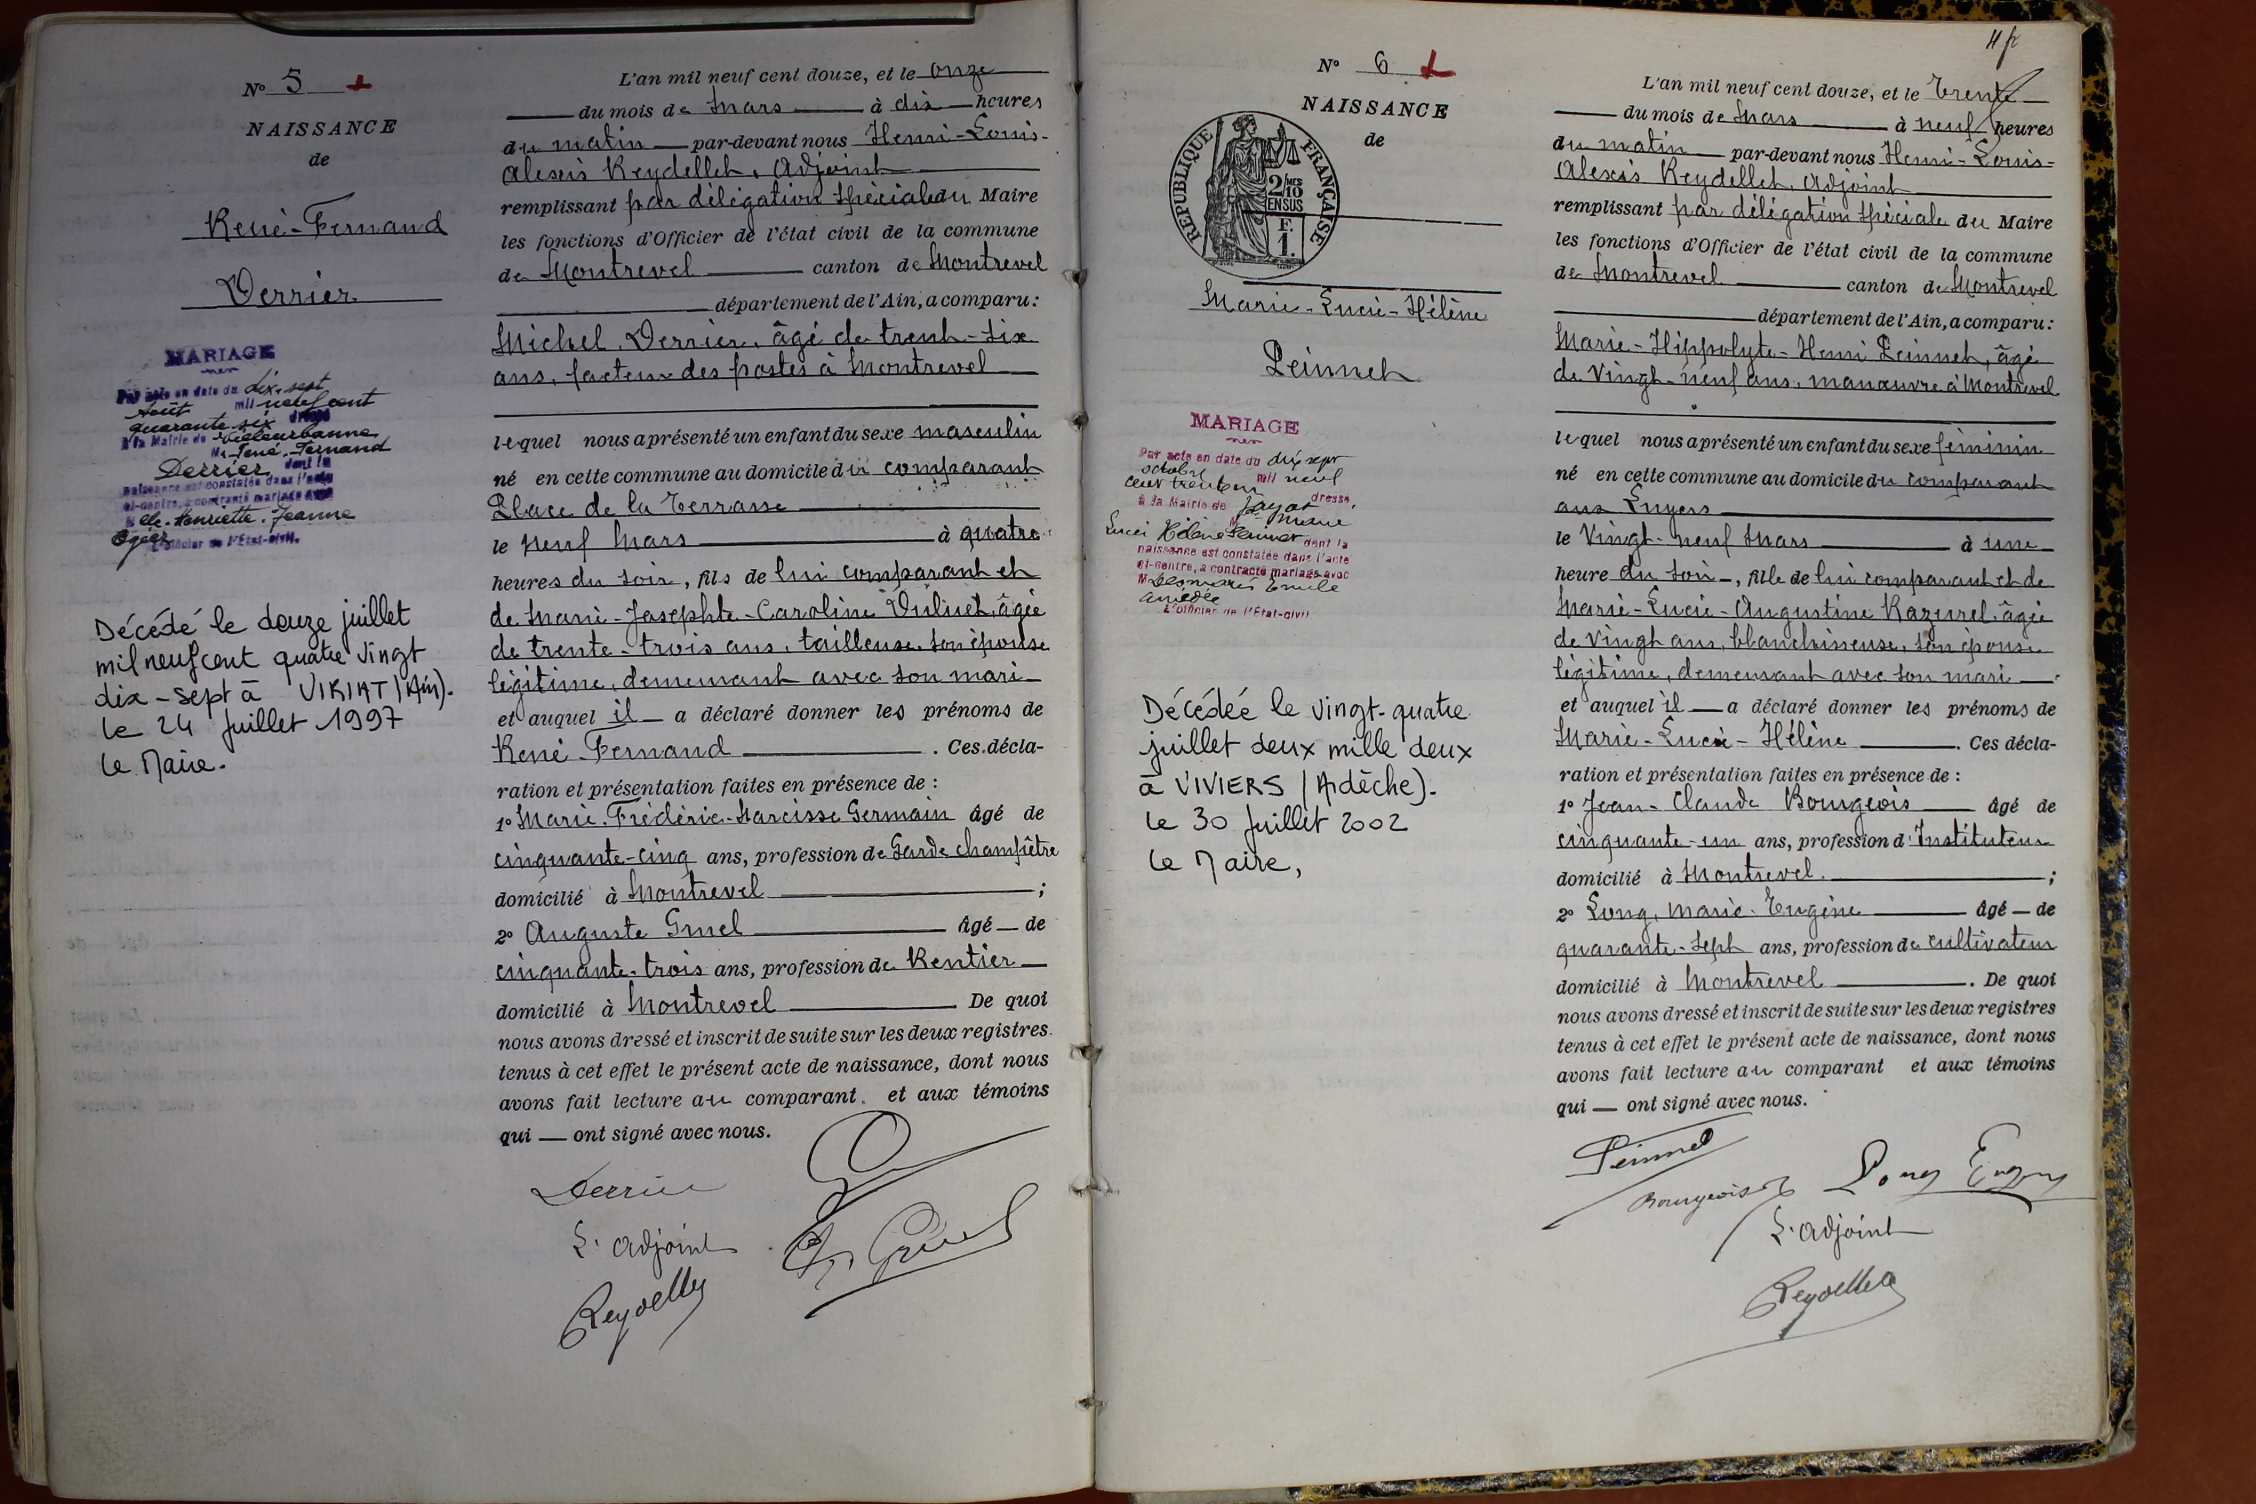 N° 5
NAISSANCE
de
René-Fernand
Derrier
MARIAGE
Par acte en date du dix-sept
Août mil neuf cent
quarante six dressé
à la Mairie de Villeurbanne
Mr René-Fernand
Derrier dont la
naissance est constatée dans l'acte
ci-contre, a contracté mariage avec
Melle Henriette-Jeanne
Ogier
L'Officier de l'État-civil.
Décédé le douze juillet
mil neuf cent quatre vingt
dix-sept à VIRIAT (Ain).
le 24 juillet 1997
Le Maire.
L'an mil neuf cent douze, et le onze
du mois de Mars à dix heures
du matin par-devant nous Henri-Louis-
Alexis Reydellet, Adjoint
remplissant par délégation spéciale du Maire
les fonctions d'Officier de l'état civil de la commune
de Montrevel canton de Montrevel
département de l'Ain, a comparu :
Michel Derrier, âgé de trent-six
ans, facteur des postes à Montrevel
lequel nous a présenté un enfant du sexe masculin
né en cette commune au domicile du comparant
Place de la Terrasse
le neuf Mars à quatre
heures du soir, fils de lui comparant et
de Marie-Josephte-Caroline Vulinet, âgée
de trente-trois ans, tailleuse, son épouse
légitime, demeurant avec son mari
et auquel il a déclaré donner les prénoms de
René Fernand. Ces décla-
ration et présentation faites en présence de :
1° Marie-Frédéric-Narcisse Germain âgé de
cinquante-cinq ans, profession de Garde champêtre
domicilié à Montrevel ;
2° Auguste Gruel âgé de
cinquante-trois ans, profession de Rentier
domicilié à Montrevel De quoi
nous avons dressé et inscrit de suite sur les deux registres
tenus à cet effet le présent acte de naissance, dont nous
avons fait lecture au comparant et aux témoins
qui ont signé avec nous.
Derrier
L'adjoint
Gruel
Reydellet
4 f
N° 6
NAISSANCE
de
REPUBLIQUE FRANÇAISE
2/10 MES
EN SUS
F.
1.
Marie-Lucie-Hélène
Peinnet
MARIAGE
Par acte en date du dix sept
octobre mil neuf
cent trente dressé,
à la Mairie de Jayat
M Marie
Lucie Hélène Peinnet dont la
naissance est constatée dans l'acte
ci-contre, a contracté mariage avec
M Desmaris Emile
Amédée
L'Officier de l'État-civil
Décédée le vingt-quatre
juillet deux mille deux
à VIVIERS (Ardèche).
le 30 juillet 2002
Le Maire,
L'an mil neuf cent douze, et le Trente
du mois de Mars à neuf heures
du matin par-devant nous Henri-Louis-
Alexis Reydellet, Adjoint
remplissant par délégation spéciale du Maire
les fonctions d'Officier de l'état civil de la commune
de Montrevel canton de Montrevel
département de l'Ain, a comparu :
Marie-Hippolyte-Henri Peinnet, âgé
de vingt-neuf ans, manœuvre à Montrevel
lequel nous a présenté un enfant du sexe féminin
né en cette commune au domicile du comparant
aux Luyers
le Vingt-neuf Mars à une
heure du soir, fille de lui comparant et de
Marie-Lucie-Augustine Razurel, âgée
de vingt ans, blanchisseuse, son épouse
légitime, demeurant avec son mari
et auquel il a déclaré donner les prénoms de
Marie-Lucie-Hélène. Ces décla-
ration et présentation faites en présence de :
1° Jean-Claude Bourgeois âgé de
cinquante-un ans, profession d'Instituteur
domicilié à Montrevel ;
2° Long, Marie-Eugène âgé de
quarante-sept ans, profession de cultivateur
domicilié à Montrevel. De quoi
nous avons dressé et inscrit de suite sur les deux registres
tenus à cet effet le présent acte de naissance, dont nous
avons fait lecture au comparant et aux témoins
qui ont signé avec nous.
Peinnet
Bourgeois Long Eugène
L'adjoint
Reydellet